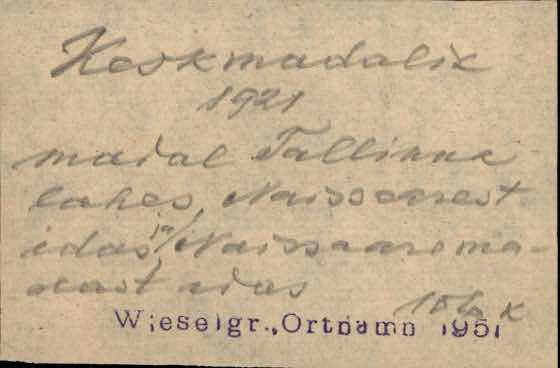 Keskmadalik
1921
madal Tallinna
lahes, Naissaarest
idas, / Naissaare ma-
dast idas
Wieselgr., Ortnamn 1951